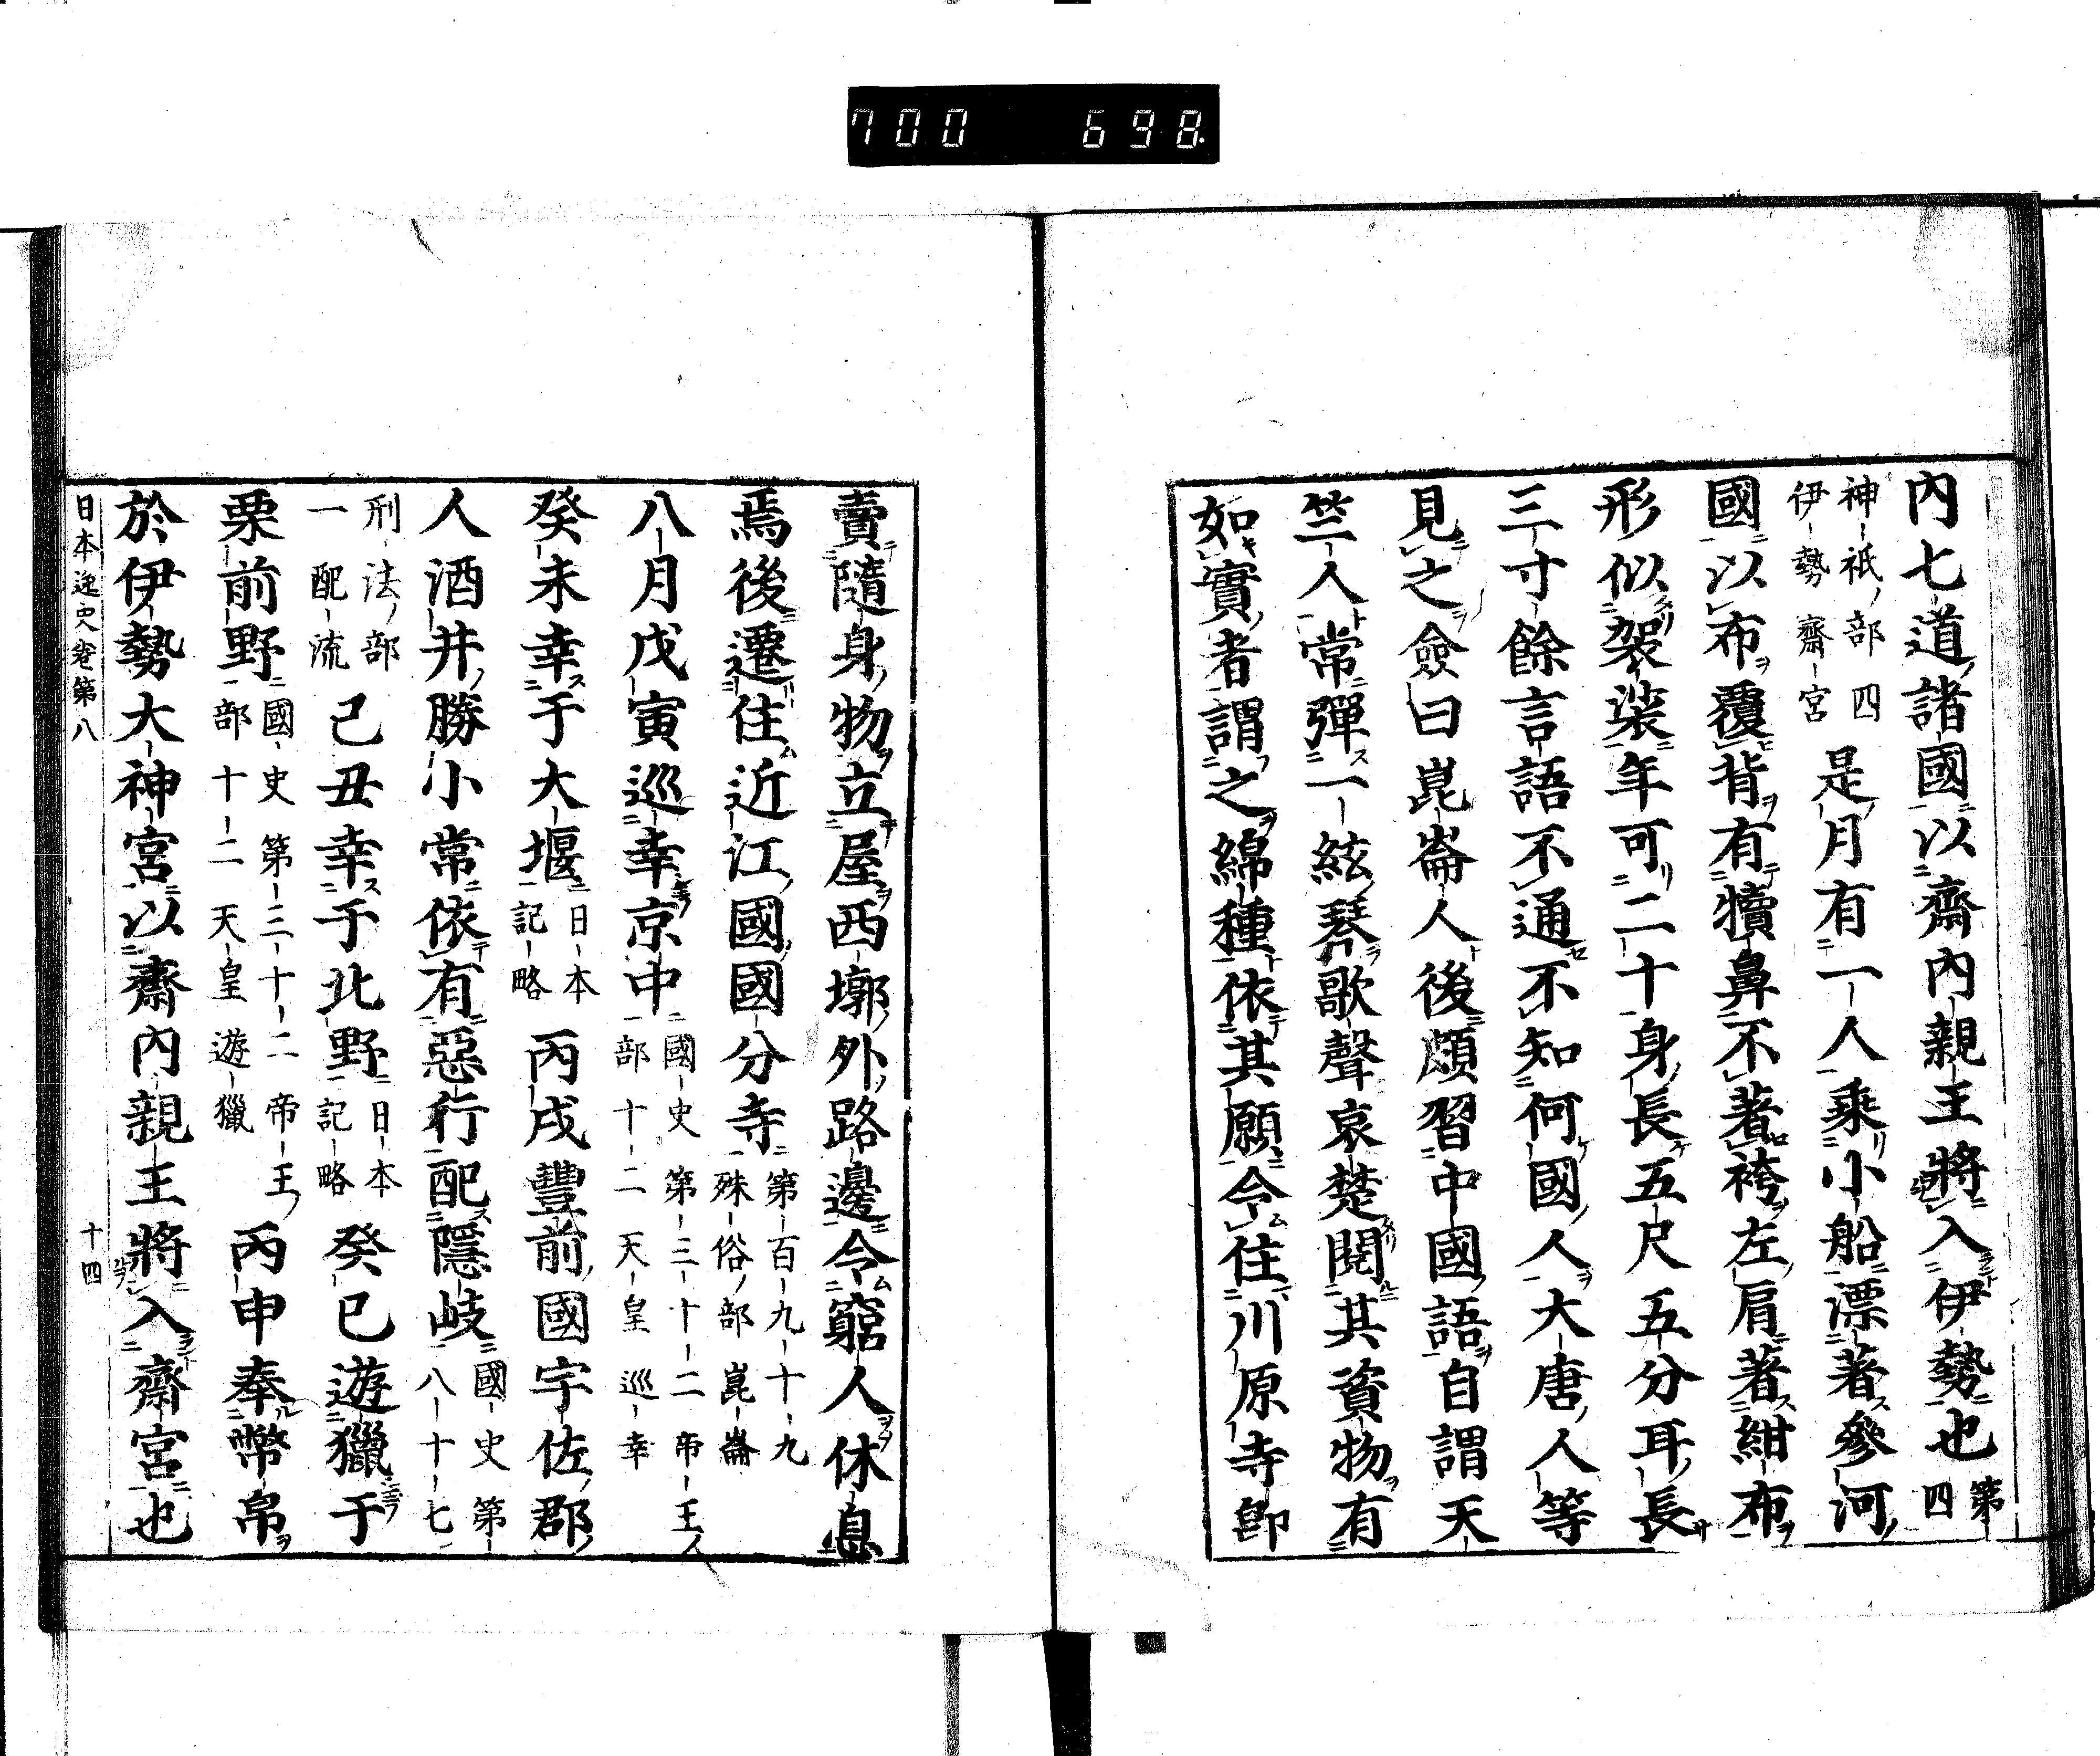 700 698
內七道諸國以齋內親王將入伊勢也第四
神祇部四伊勢齋宮是月有一人乘小船漂著參河
國以布覆背有犢鼻不著袴左肩著紺布
形似袈裟年可二十身長五尺五分耳長
三寸餘言語不通不知何國人大唐人等
見之僉曰崑崙人後頗習中國語自謂天
竺人常彈一絃琴歌聲哀楚閱其資物有
如實者謂之綿種依其願令住川原寺卽
賣隨身物立屋西墎外路邊令窮人休息
焉後遷住近江國國分寺第百九十九殊俗部崑崙
八月戊寅巡幸京中國史第三十二帝王部十二天皇巡幸
癸未幸于大堰日本記略丙戌豐前國宇佐郡
人酒井勝小常依有惡行配隱岐國史第八十七
刑法部一配流己丑幸于北野日本記略癸巳遊獵于
栗前野國史第三十二帝王部十二天皇遊獵丙申奉幣帛
於伊勢大神宮以齋內親王將入齋宮也
日本逸史卷第八 十四